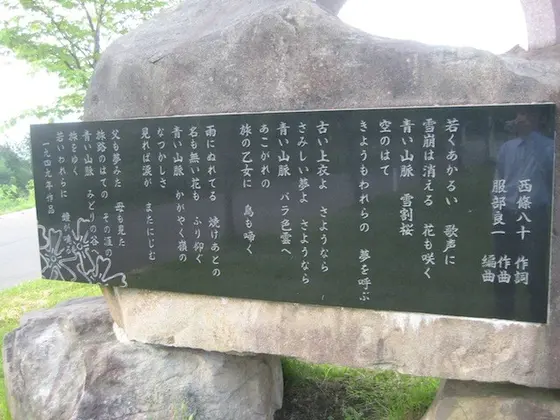 西條八十 作詞
服部良一 作曲
編曲
若くあかるい 歌声に
雪崩は消える 花も咲く
青い山脈 雪割桜
空のはて
きょうもわれらの 夢を呼ぶ
古い上衣よ さようなら
さみしい夢よ さようなら
青い山脈 バラ色雲へ
あこがれの
旅の乙女に 鳥も啼く
雨にぬれてる 焼けあとの
名も無い花も ふり仰ぐ
青い山脈 かがやく嶺の
なつかしさ
見れば涙が またにじむ
父も夢みた 母も見た
旅路のはての その涯の
青い山脈 みどりの谷
旅をゆく
若いわれらに 鐘が鳴る
一九四九年作品